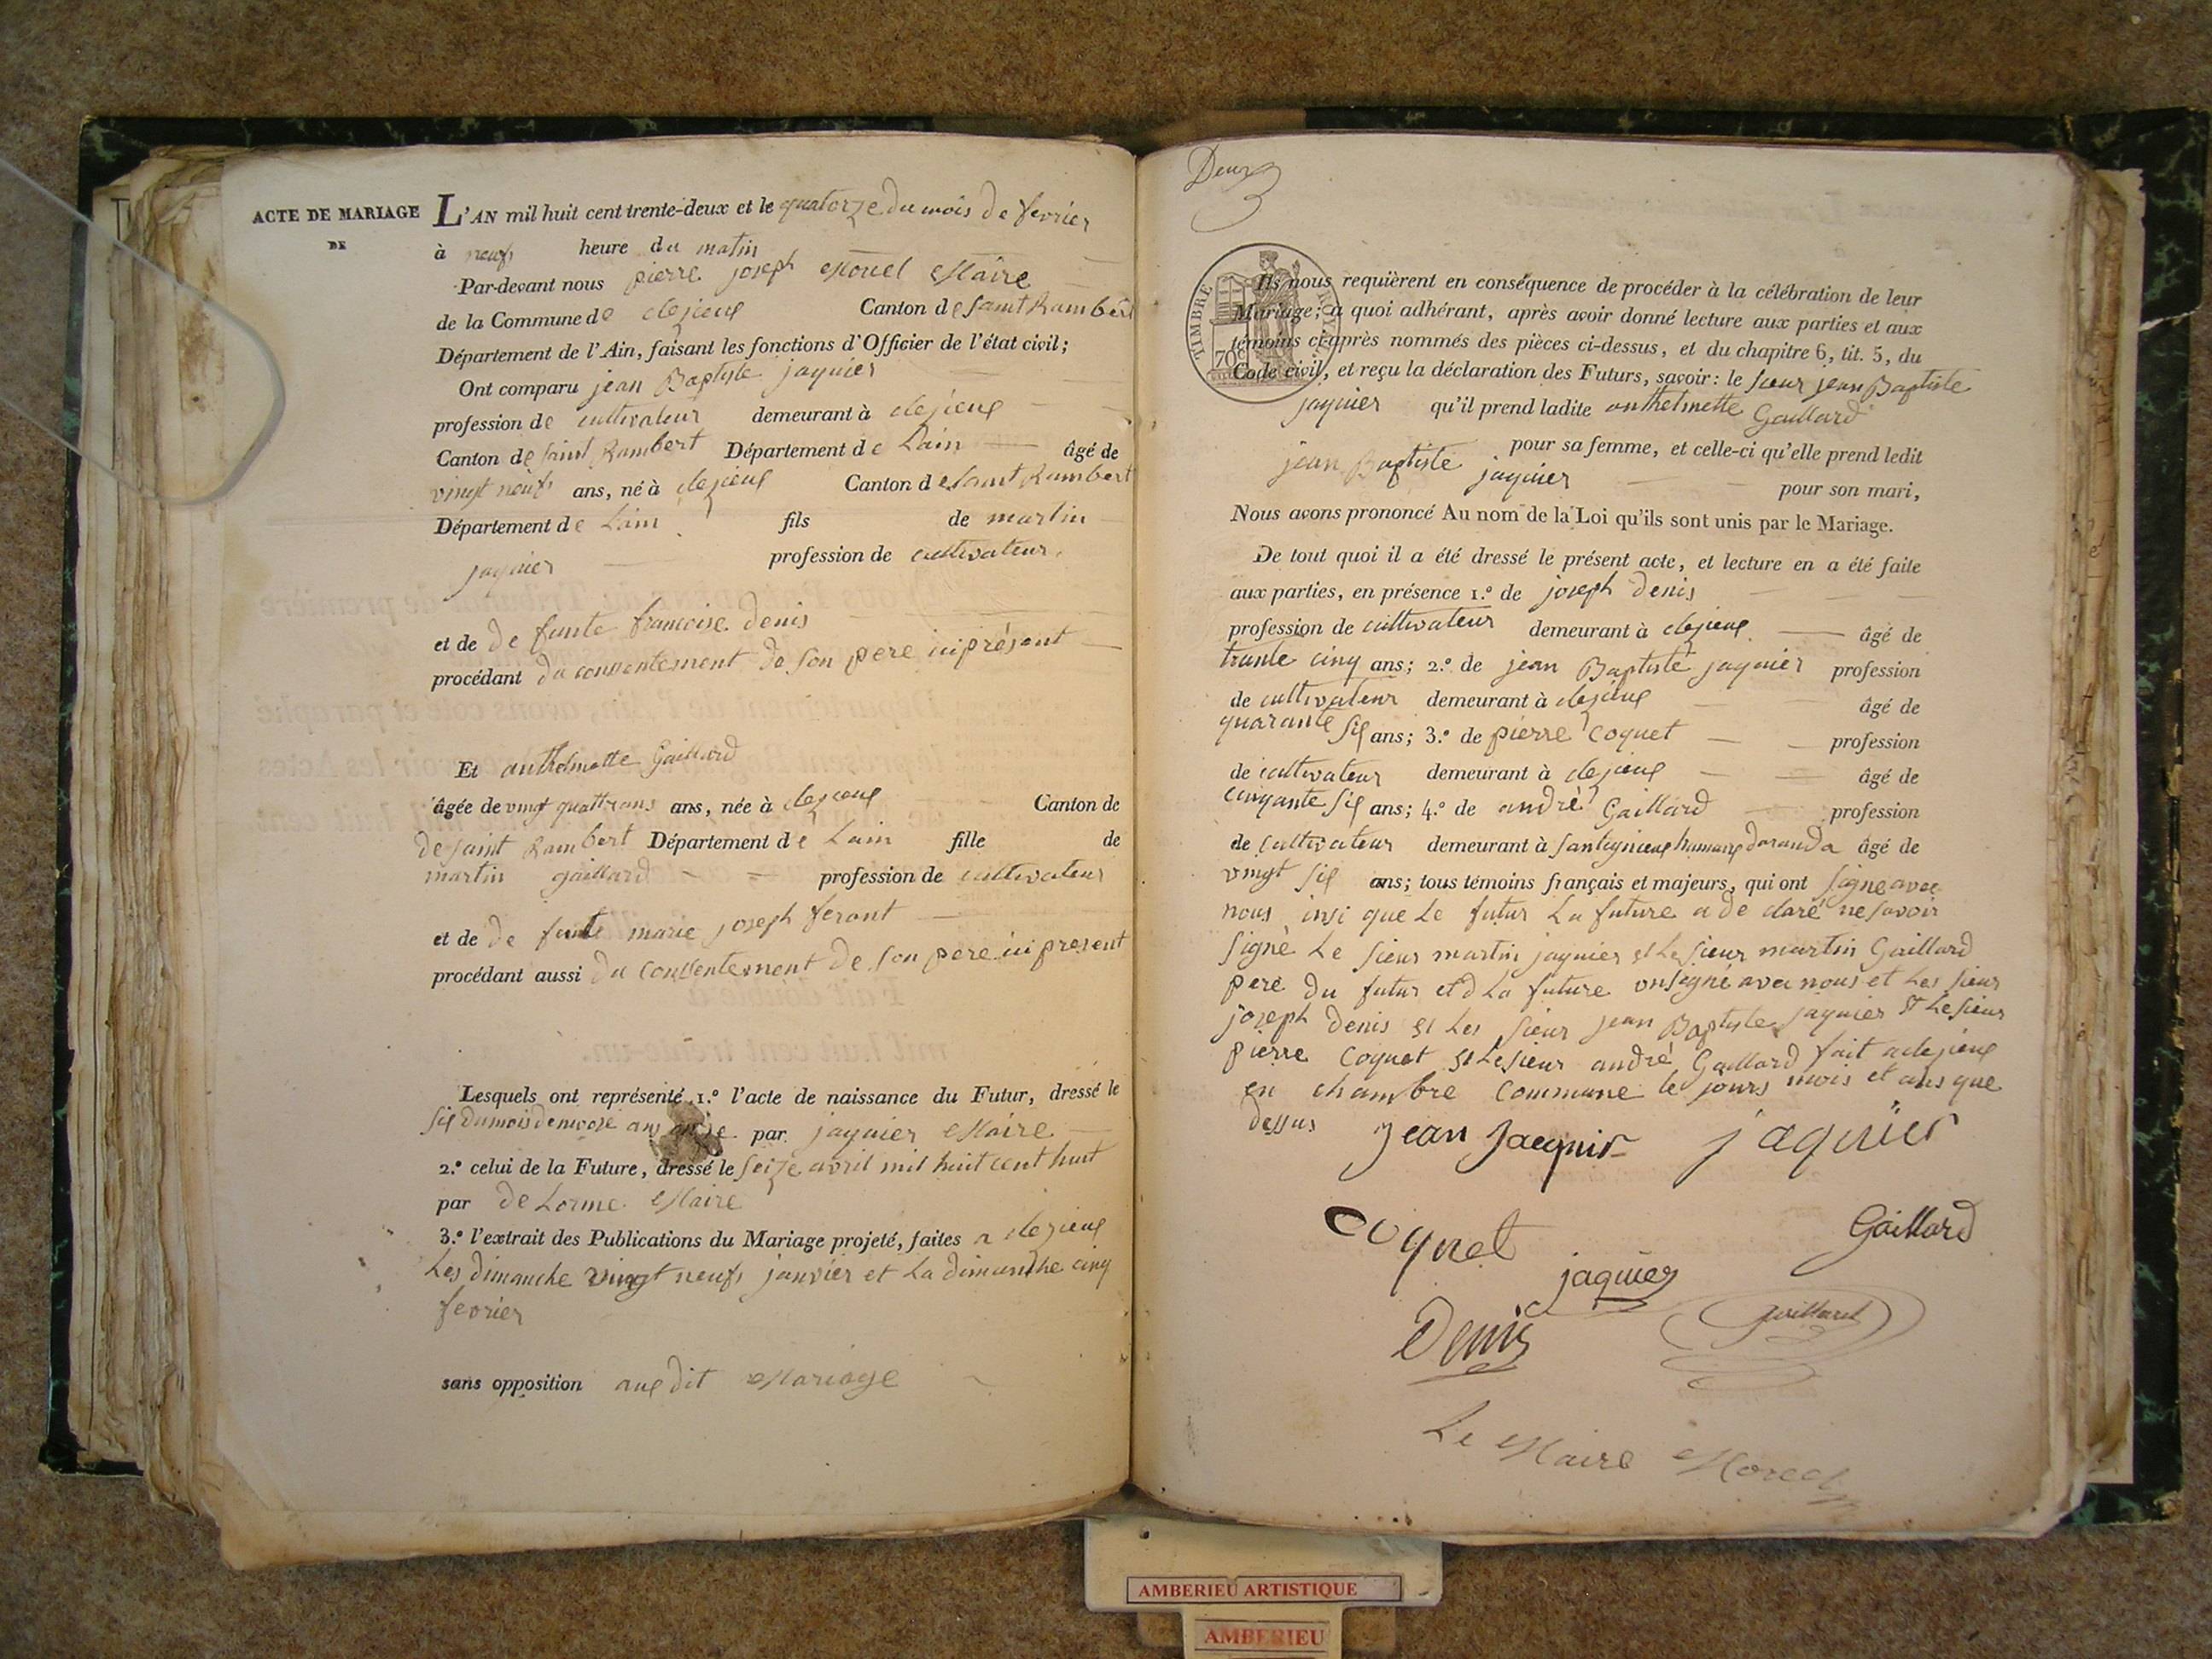 ACTE DE MARIAGE
DE
L'AN mil huit cent trente-deux et le quatorze du mois de fevrier
à neufs heure du matin
Par-devant nous pierre joseph Morel Maire
de la Commune de clezieux Canton de saint Rambert
Département de l'Ain, faisant les fonctions d'Officier de l'état civil;
Ont comparu jean Baptiste jaquier
profession de cultivateur demeurant à clezieux
Canton de saint Rambert Département de Lain âgé de
vingt neufs ans, né à clezieux Canton de saint Rambert
Département de Lain fils de martin
jaquier profession de cultivateur
et de de funte francoise denis
procédant du consentement de son pere ici présent
Et anthelmette Gaillard
âgée de vingt quattrans ans, née à clezieux Canton de
de saint Rambert Département de Lain fille de
martin gaillard profession de cultivateur
et de de funte marie joseph feront
procédant aussi du consentement de son pere ici present
Lesquels ont représenté 1.º l'acte de naissance du Futur, dressé le
six du mois de nivose ans onze par jaquier Maire
2.º celui de la Future, dressé le seize avril mil huit cent huit
par de Lorme Maire
3.º l'extrait des Publications du Mariage projeté, faites a clezieux
Les dimanche vingt neufs janvier et La dimanche cinq
fevrier
sans opposition aux dit Mariage
Deux
TIMBRE ROYAL
70c
Ils nous requièrent en conséquence de procéder à la célébration de leur
Mariage; à quoi adhérant, après avoir donné lecture aux parties et aux
témoins ci-après nommés des pièces ci-dessus, et du chapitre 6, tit. 5, du
Code civil, et reçu la déclaration des Futurs, savoir: le sieur jean Baptiste
jaquier qu'il prend ladite anthelmette Gaillard
pour sa femme, et celle-ci qu'elle prend ledit
jean Baptiste jaquier pour son mari,
Nous avons prononcé Au nom de la Loi qu'ils sont unis par le Mariage.
De tout quoi il a été dressé le présent acte, et lecture en a été faite
aux parties, en présence 1.º de joseph denis
profession de cultivateur demeurant à clezieux âgé de
trante cinq ans; 2.º de jean Baptiste jaquier profession
de cultivateur demeurant à clezieux âgé de
quarante six ans; 3.º de pierre Coquet profession
de cultivateur demeurant à clezieux âgé de
cinquante six ans; 4.º de andré Gaillard profession
de cultivateur demeurant à daranda âgé de
vingt six ans; tous témoins français et majeurs, qui ont signe avec
nous insi que Le futur La future a de claré ne savoir
signé Le sieur martin jaquier et Le sieur martin Gaillard
pere du futur et d La future onsegné avec nous et Les sieur
joseph Denis et Les sieur jean Baptiste jaquier et Le sieur
pierre Coquet et Le sieur andré Gaillard fait a clezieux
en chambre Commune le jours mois et ans que
dessus jean Jacquir jaquier
Coquet Gaillard
jaquier
Denis gaillard
Le Maire Morel
AMBERIEU ARTISTIQUE
AMBERIEU